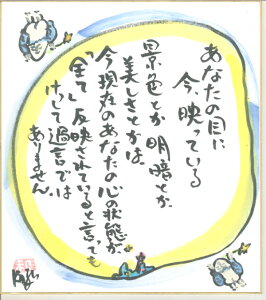 あなたの目に
今、映っている
景色とか明暗とか
美しさとかは、
今現在のあなたの心の状態が
「全て」反映されていると言っても
けっして過言では
ありません